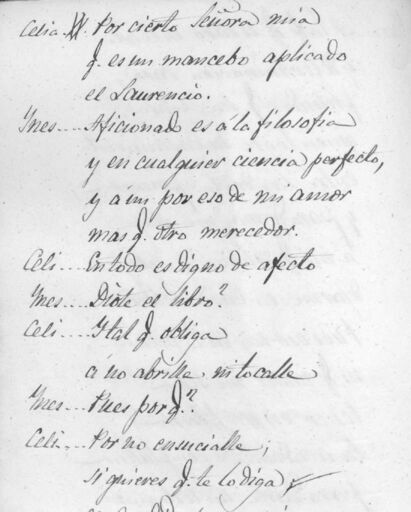 Celia. Por cierto Señora mia
q. es un mancebo aplicado
el Laurencio.
Ynes.... Aficionado es á la filosofia
y en cualquier ciencia perfecto,
y á un por eso de mi amor
mas q. otro merecedor.
Celi.... En todo es digno de afecto
Ynes.... Diote el libro?
Celi.... Y tal q. obliga
á no abrille ni tocalle
Ynes.... Pues por q.?
Celi.... Por no ensucialle;
si quieres q. te lo diga